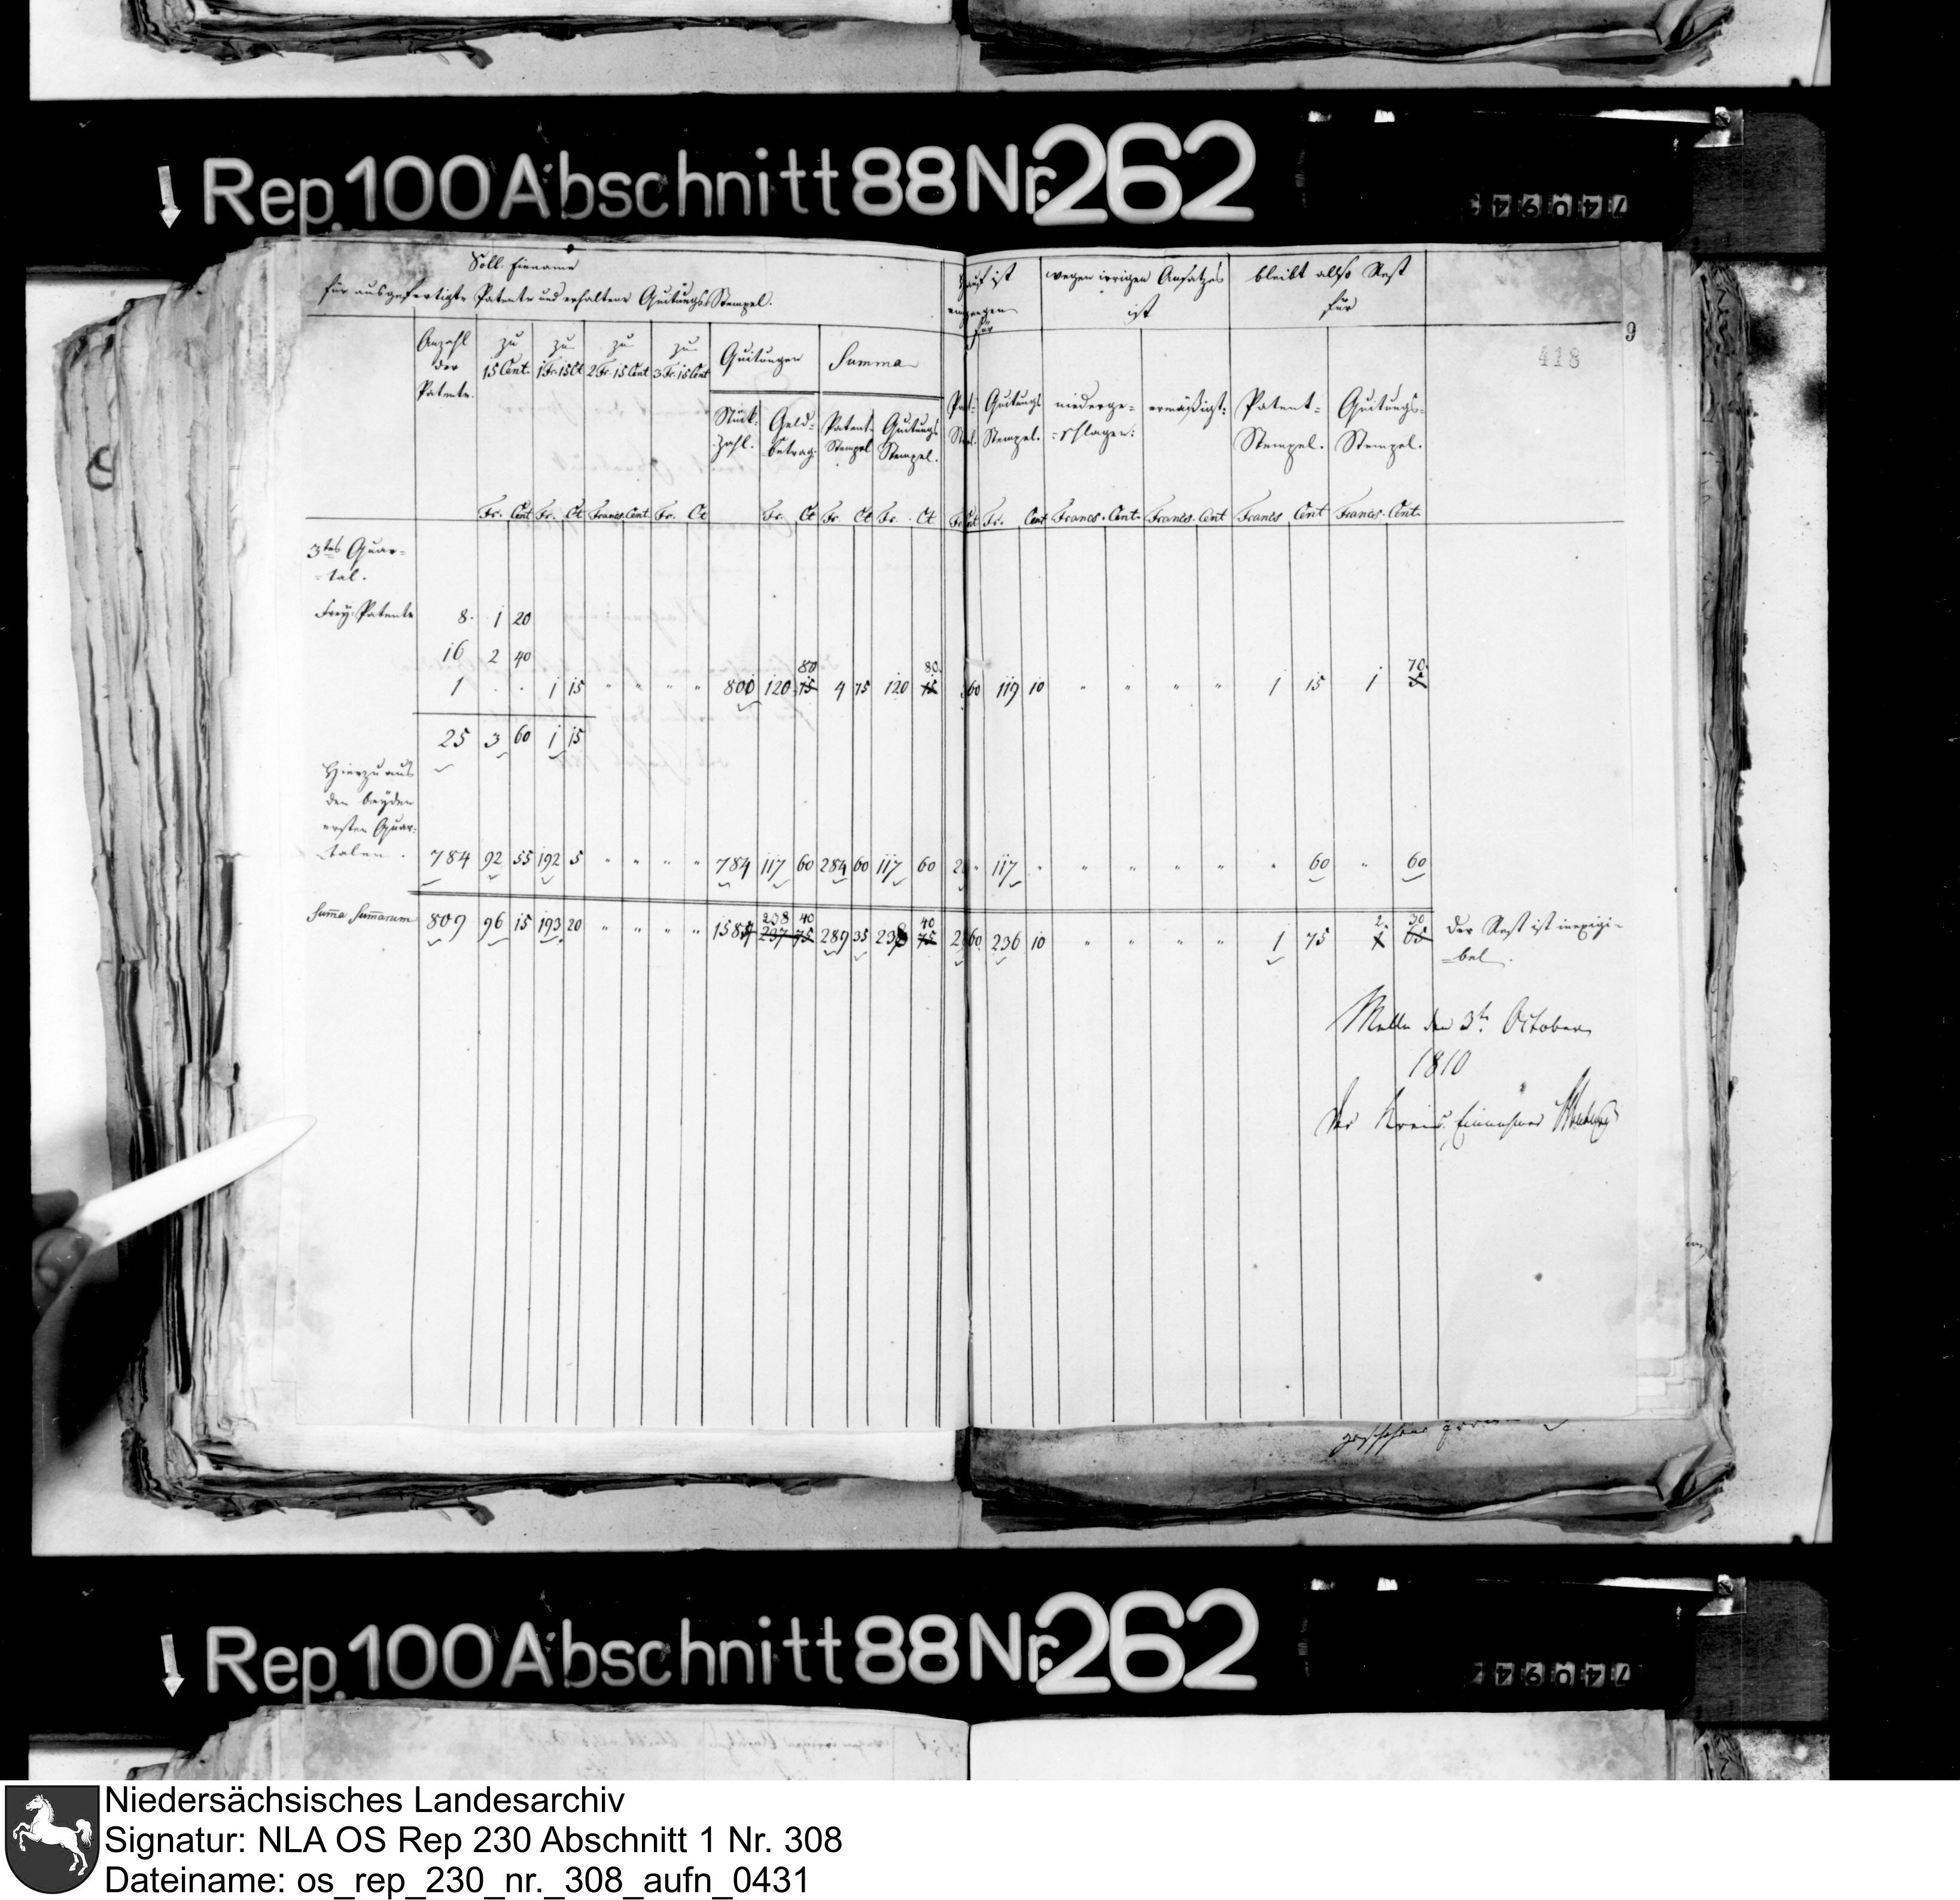 Rep. 100 Abschnitt 88 Nr. 262
Soll Einname
für ausgefertigte Patente und erhaltene Quitungs Stempel.
darauf ist eingegangen für
wegen irrigen Ansatzes ist
bleibt also Rest für
9
418
Anzahl der Patente.
zu 15 Cent.
zu 1 Fr. 15 Ct
zu 2 Fr. 15 Cent
zu 3 Fr. 15 Cent
Quitungen
Summa
Stück-Zahl.
Geld-betrag.
Patent-Stempel
Quitungs Stempel.
Quitungs Stempel.
niederge-
=schlagen:
ermäßigt:
Patent=
Stempel.
Quitungs=
Stempel.
Fr. Cent Fr. Ct Francs Cent Fr. Ct Fr. Ct Fr Ct Fr. Ct Fr. Cent Francs. Cent. Francs. Cent Francs Cent Francs. Cent.
3tes Quar=
=tal.
Frey Patente 8. 1 20
16 2 40
80 80 70
1 . . 1 15 " " " " 800 120 75 4 75 120 15 60 119 10 " " " " 1 15 1
25 3 60 1 15
Hierzu aus
den beyden
ersten Quar=
talen. 784 92 55 192 5 " " " " 784 117 60 284 60 117 60 " 117 " " " " " " 60 " 60
238 40 40 2. 30
Summa Summarum 809 96 15 193 20 " " " " 1584 237 75 289 35 238 75 60 236 10 " " " " 1 75 1 65 Der Rest ist inexigi=
=bel.
Melle den 3t. October
1810
Der Kreis Einnehmer
Rep. 100 Abschnitt 88 Nr. 262
Niedersächsisches Landesarchiv
Signatur: NLA OS Rep 230 Abschnitt 1 Nr. 308
Dateiname: os_rep_230_nr._308_aufn_0431